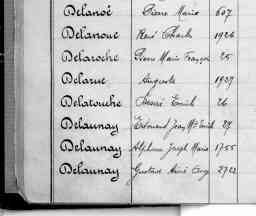 Delanoë Pierre Marie 607
Delanoue René Charles 1926
Delaroche Pierre Marie François 25
Delarue Auguste 1927
Delatouche Désiré Emile 26
Delaunay Edouard Jean Mie Emile 27
Delaunay Alphonse Joseph Marie 1755
Delaunay Gustave Aimé 2722